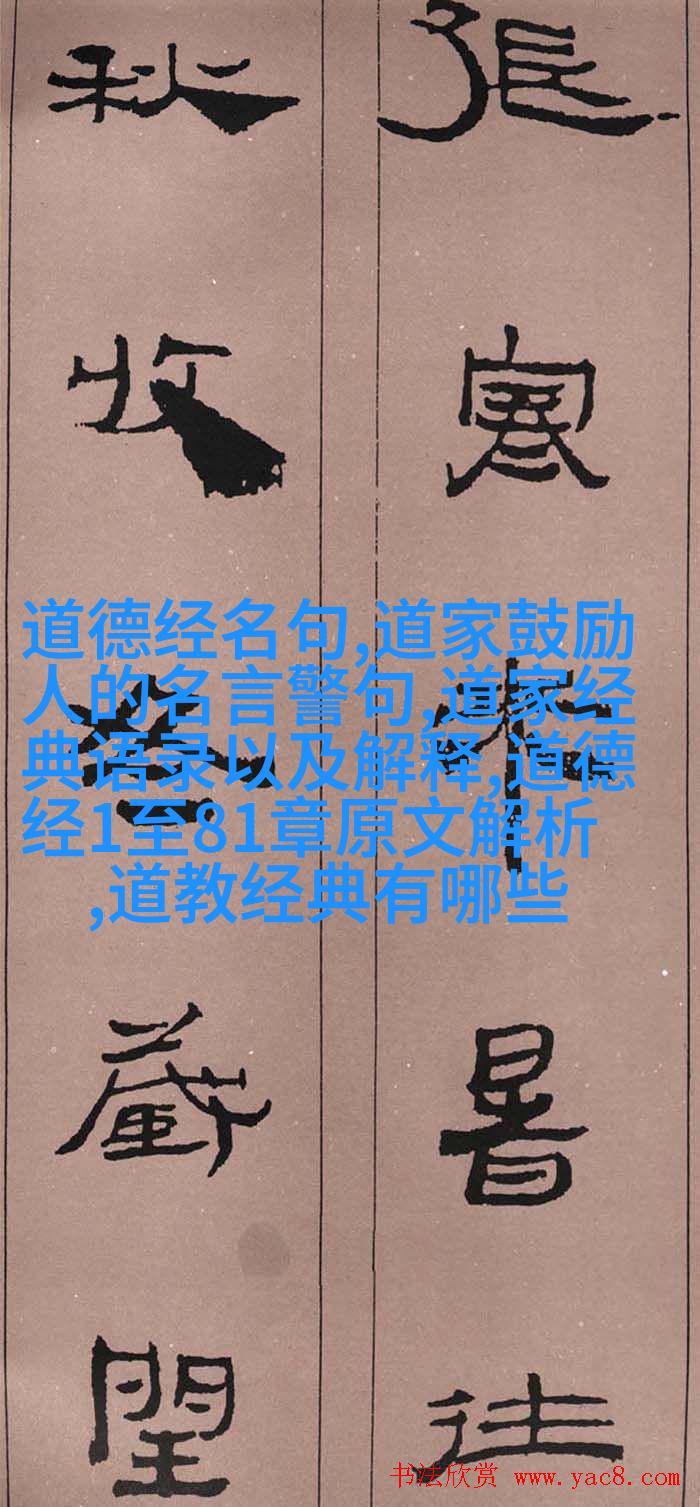 張寒來暑往
秋收冬藏閏
道德经名句,道家鼓励
人的名言警句,道家经
典语录以及解释,道德
经1至81章原文解析
,道教经典有哪些
书法欣赏 www.yac8.com